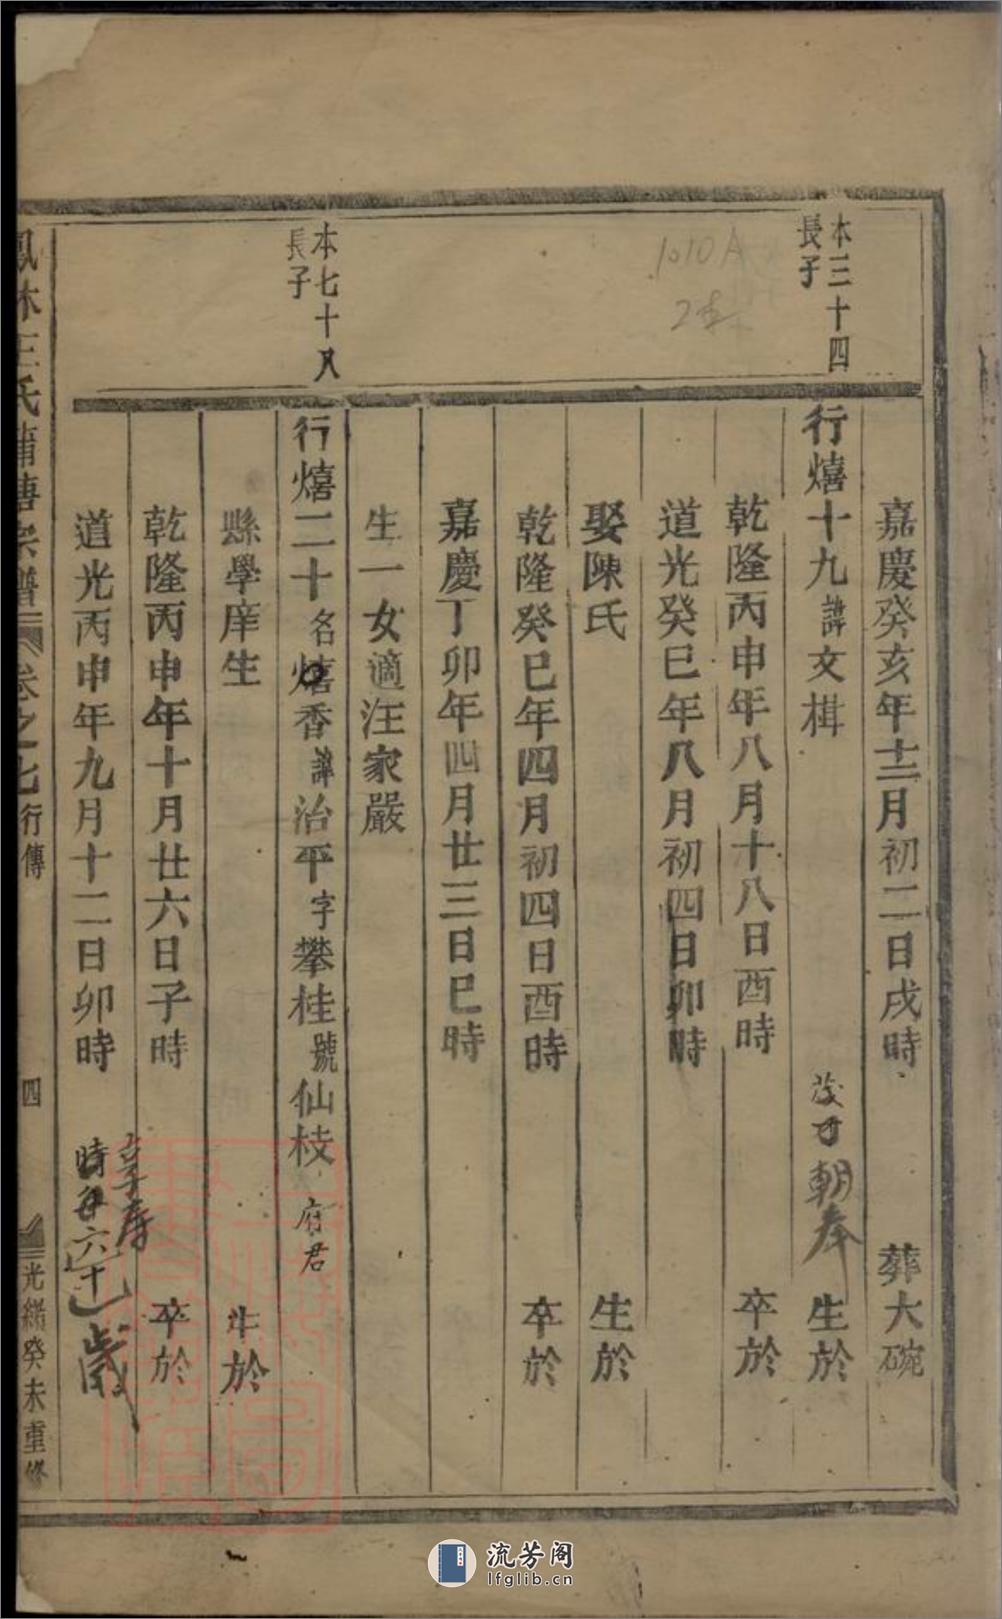 嘉慶癸亥年十二月初二日戌時 葬大碗
本三十四
長子
行熺十九諱文楫 茂才朝奉 生於
乾隆丙申年八月十八日酉時 卒於
道光癸巳年八月初四日卯時
娶陳氏 生於
乾隆癸巳年四月初四日酉時 卒於
嘉慶丁卯年四月廿三日巳時
生一女適汪家嚴
本七十八
長子
行熺二十名熺香諱治平字攀桂號仙枝 府君
縣學庠生 生於
乾隆丙申年十月廿六日子時 卒於
道光丙申年九月十二日卯時 享壽
時年六十一歲
鳳林王氏蒲塘宗譜 卷之七 行傳 四 光緒癸未重修
1010A
2本
流芳阁
lfglib.cn